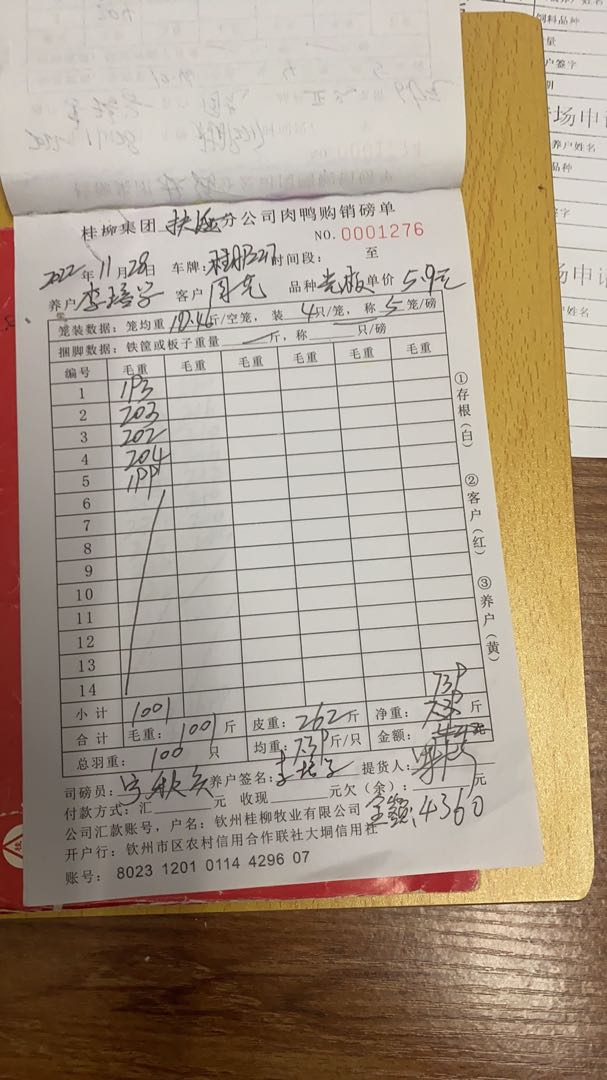 桂柳集团 扶绥 分公司肉鸭购销磅单
NO.0001276
2022年11月28日 车牌: 时间段: 至
养户 李培学 客户 品种 光板 单价 5.9元
笼装数据: 笼均重 斤/空笼, 装 4只/笼, 称 5 笼/磅
捆脚数据: 铁筐或板子重量 斤, 称 只/磅
编号 毛重 毛重 毛重 毛重 毛重 毛重
1 193
2 203
3 202
4 204
5 199
6
7
8
9
10
11
12
13
14
小计 1001
739
合计 毛重: 1001 斤 皮重: 262 斤 净重: 斤
总羽重: 100 只 均重: 7.39 斤/只 金额: 元
司磅员: 养户签名: 李培学 提货人:
付款方式: 汇 元 收现 元欠(余): 元
公司汇款账号, 户名: 钦州桂柳牧业有限公司 金额: 4360
开户行: 钦州市区农村信用合作联社大垌信用社
账号: 8023 1201 0114 4296 07
①存根(白)
②客户(红)
③养户(黄)
饲料品种
户签字
场申请
养户姓名
品种
签字
场申请
养户姓名